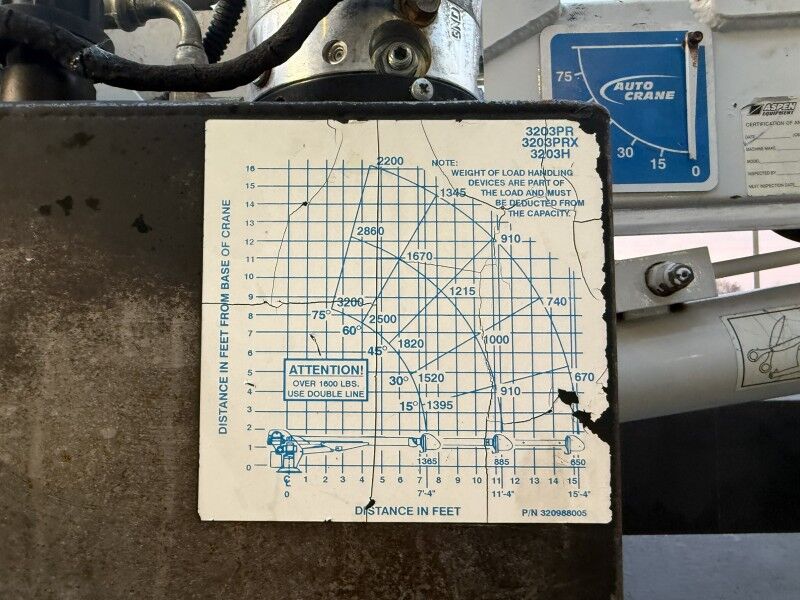 SNO
75
AUTO
CRANE
30
15
0
ASPEN
EQUIPMENT
CERTIFICATION OF AN
DATE
MACHINE MAKE
MODEL
INSPECTED BY
NEXT INSPECTION DATE
3203PR
3203PRX
3203H
NOTE:
WEIGHT OF LOAD HANDLING
DEVICES ARE PART OF
THE LOAD AND MUST
BE DEDUCTED FROM
THE CAPACITY.
DISTANCE IN FEET FROM BASE OF CRANE
16
15
14
13
12
11
10
9
8
7
6
5
4
3
2
1
0
2200
1345
2860
910
1670
1215
3200
740
75°
2500
60°
1000
1820
45°
670
30° 1520
910
15° 1395
ATTENTION!
OVER 1600 LBS.
USE DOUBLE LINE
1365
885
650
1 2 3 4 5 6 7 8 9 10 11 12 13 14 15
0
7'-4"
11'-4"
15'-4"
DISTANCE IN FEET
P/N 320988005